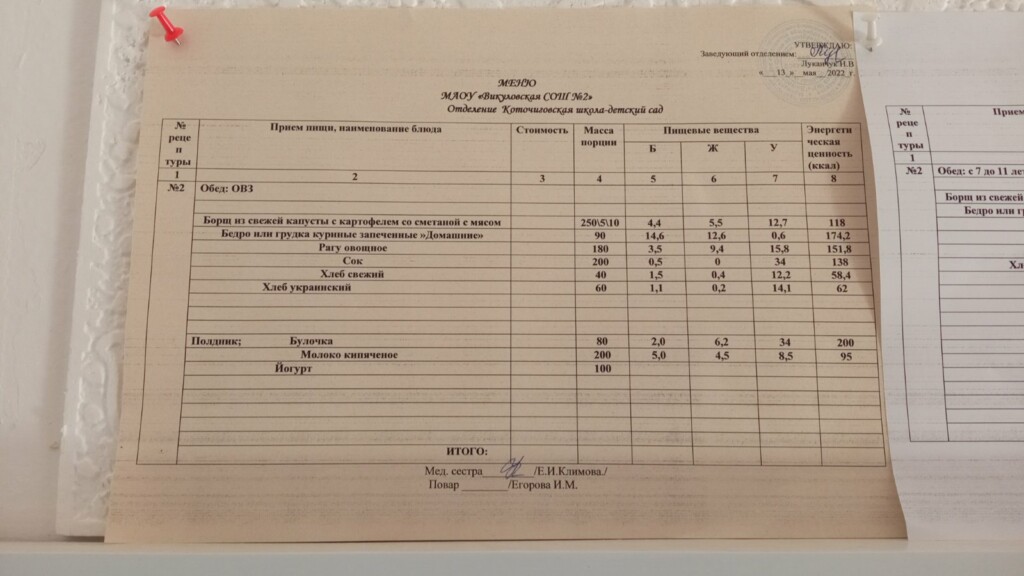 УТВЕРЖДАЮ:
Заведующий отделением:
Луканчук Н.В
« 13 » мая 2022 г.
МЕНЮ
МАОУ «Викуловская СОШ №2»
Отделение Коточиговская школа-детский сад
№ реце п туры Прием пищи, наименование блюда Стоимость Масса порции Пищевые вещества Энергети ческая ценность (ккал)
Б Ж У
1 2 3 4 5 6 7 8
№2 Обед: ОВЗ
Борщ из свежей капусты с картофелем со сметаной с мясом 250\5\10 4,4 5,5 12,7 118
Бедро или грудка куриные запеченные »Домашние» 90 14,6 12,6 0,6 174,2
Рагу овощное 180 3,5 9,4 15,8 151,8
Сок 200 0,5 0 34 138
Хлеб свежий 40 1,5 0,4 12,2 58,4
Хлеб украинский 60 1,1 0,2 14,1 62
Полдник; Булочка 80 2,0 6,2 34 200
Молоко кипяченое 200 5,0 4,5 8,5 95
Йогурт 100
ИТОГО:
Мед. сестра /Е.И.Климова./
Повар /Егорова И.М.
№ реце п туры Прием
1
№2 Обед: с 7 до 11 лет
Борщ из свежей
Бедро или гр
Хл